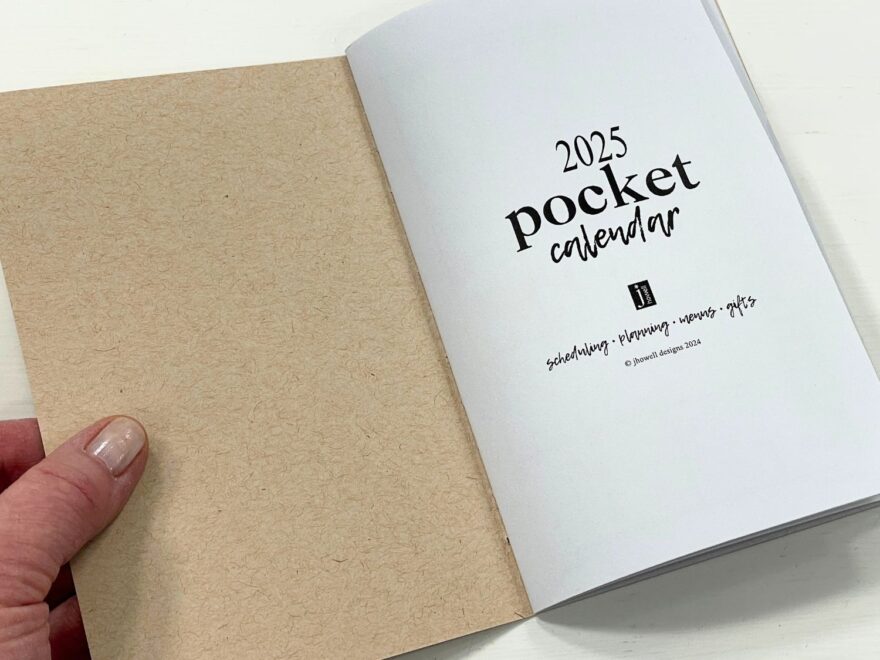 2025
pocket
calendar
j howell
scheduling • planning • menus • gifts
© jhowell designs 2024